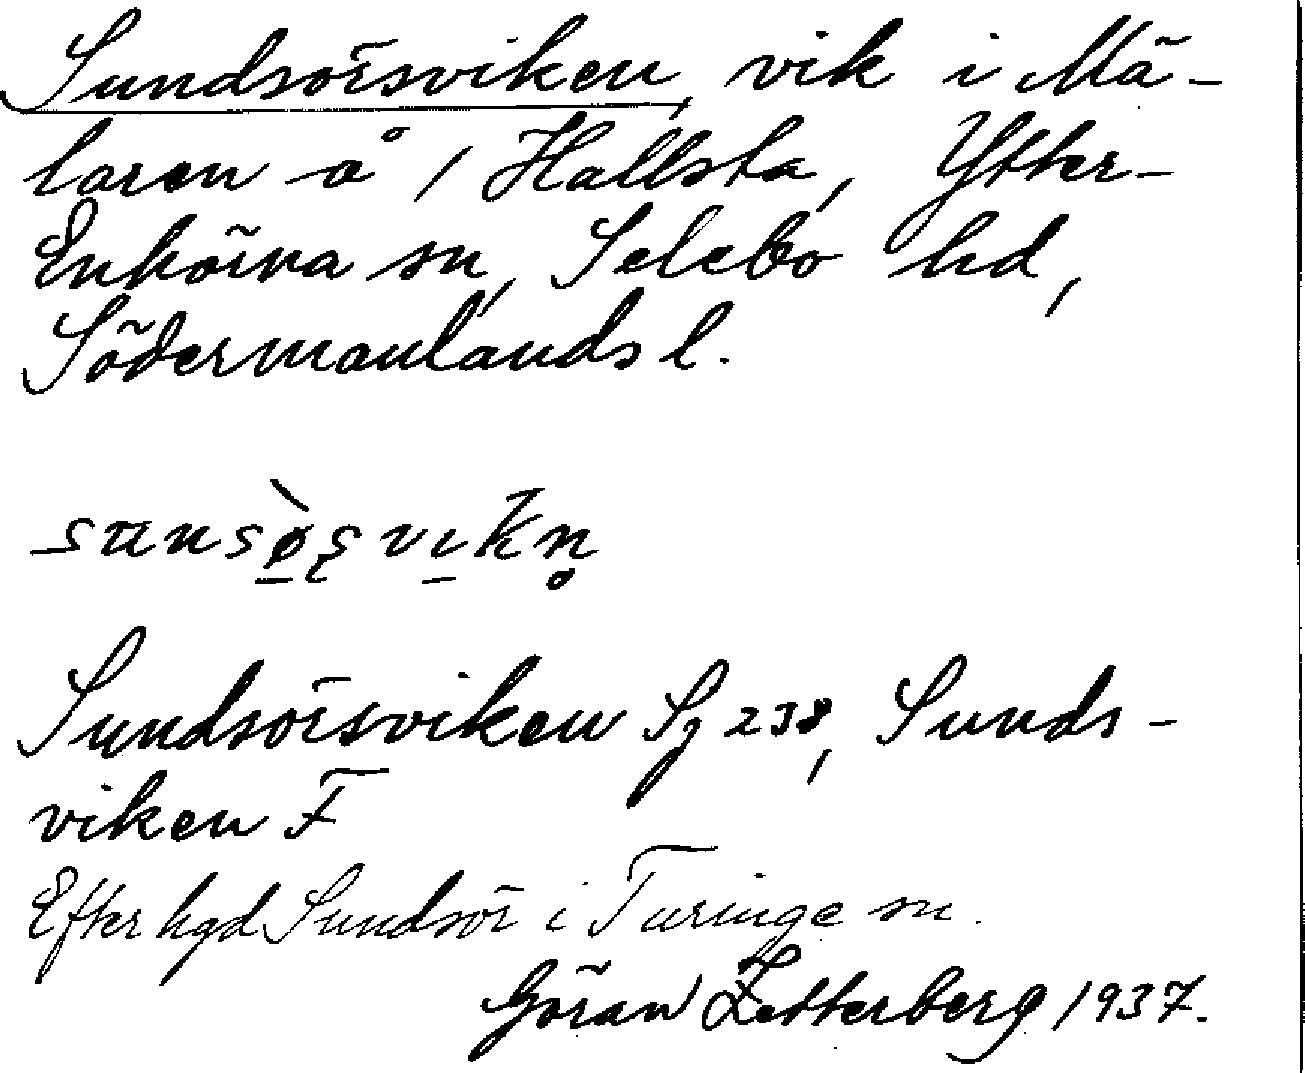 Sundsörsviken, vik i Mä-
laren å 1 Hallsta, Ytter-
Enhörna sn, Selebo hd,
Södermanlands l.
sunsø̀ṣvikn̥
Sundsörsviken Sg 238, Sunds-
viken F
Efter hgd Sundsör i Turinge sn.
Göran Zetterberg 1937.